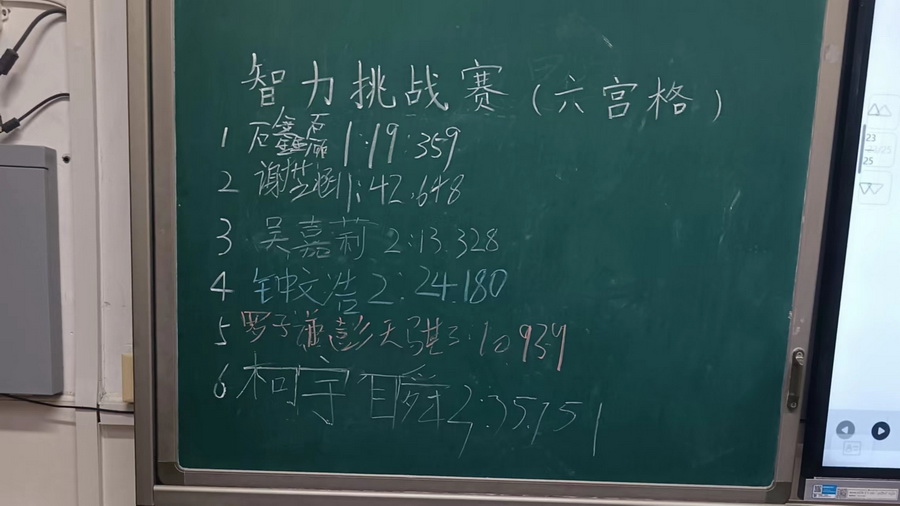 智力挑战赛(六宫格)
1 石鑫磊 1:19:359
2 谢芷涵 1:42.648
3 吴嘉莉 2:13.328
4 钟文浩 2:24.180
5 罗子谦 彭天骐 3:10.939
6 柯宇 2:35.751
23
25